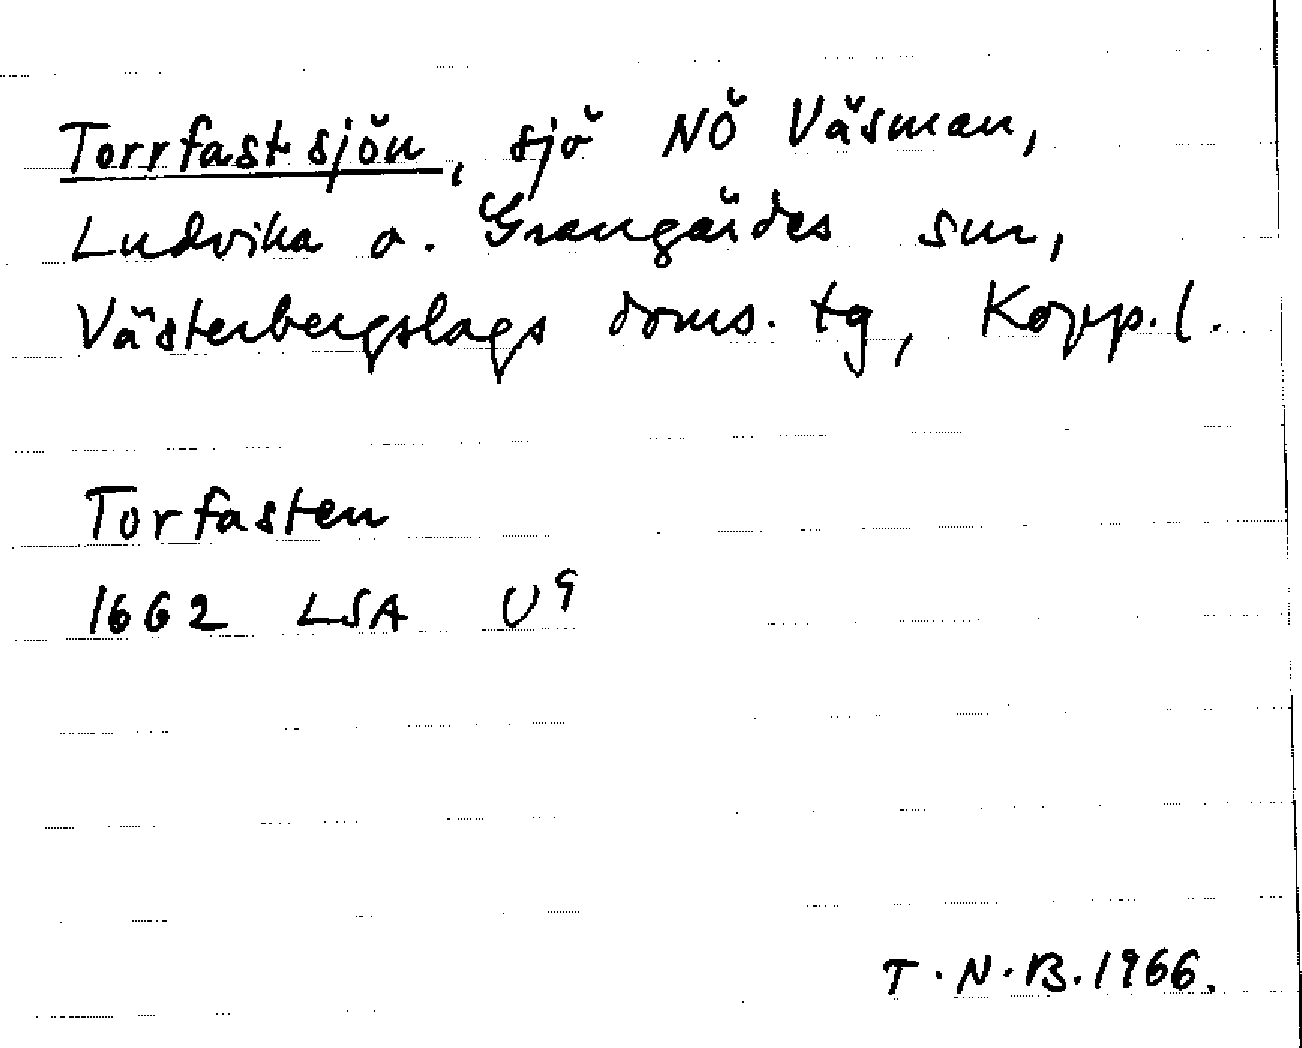 Torrfastsjön, sjö NÖ Väsman,
Ludvika o. Grangärdes snr,
Västerbergslags doms. tg, Kopp. l.
Torfasten
1662 LSA U9
T.N.B. 1966.